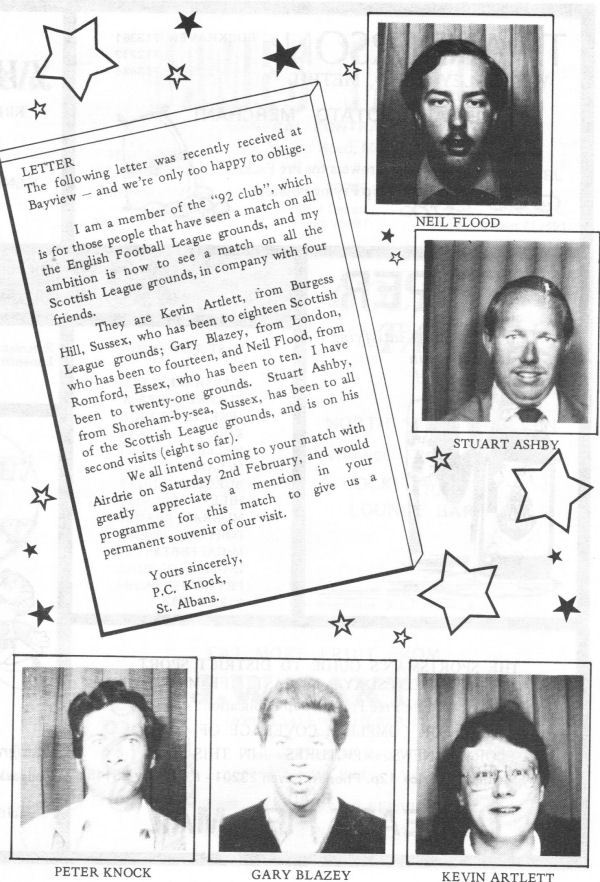 LETTER
The following letter was recently received at
Bayview — and we're only too happy to oblige.
I am a member of the "92 club", which
is for those people that have seen a match on all
the English Football League grounds, and my
ambition is now to see a match on all the
Scottish League grounds, in company with four
friends.
They are Kevin Artlett, from Burgess
Hill, Sussex, who has been to eighteen Scottish
League grounds; Gary Blazey, from London,
who has been to fourteen, and Neil Flood, from
Romford, Essex, who has been to ten. I have
been to twenty-one grounds. Stuart Ashby,
from Shoreham-by-sea, Sussex, has been to all
of the Scottish League grounds, and is on his
second visits (eight so far).
We all intend coming to your match with
Airdrie on Saturday 2nd February, and would
greatly appreciate a mention in your
programme for this match to give us a
permanent souvenir of our visit.
Yours sincerely,
P.C. Knock,
St. Albans.
NEIL FLOOD
STUART ASHBY
PETER KNOCK
GARY BLAZEY
KEVIN ARTLETT